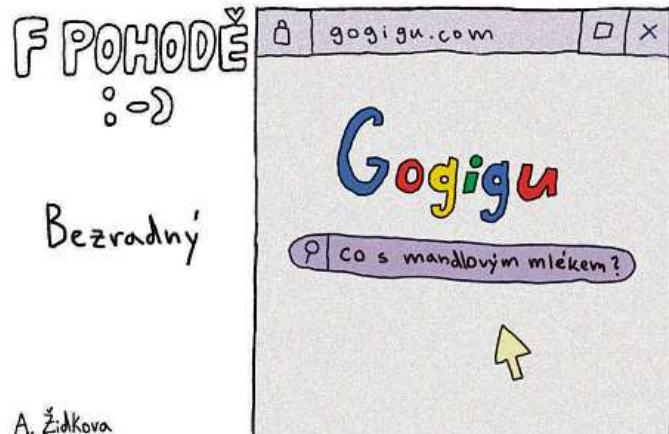 F POHODĚ
:-)
Bezradný
A. Židkova
gogigu.com
Gogigu
co s mandlovým mlékem?